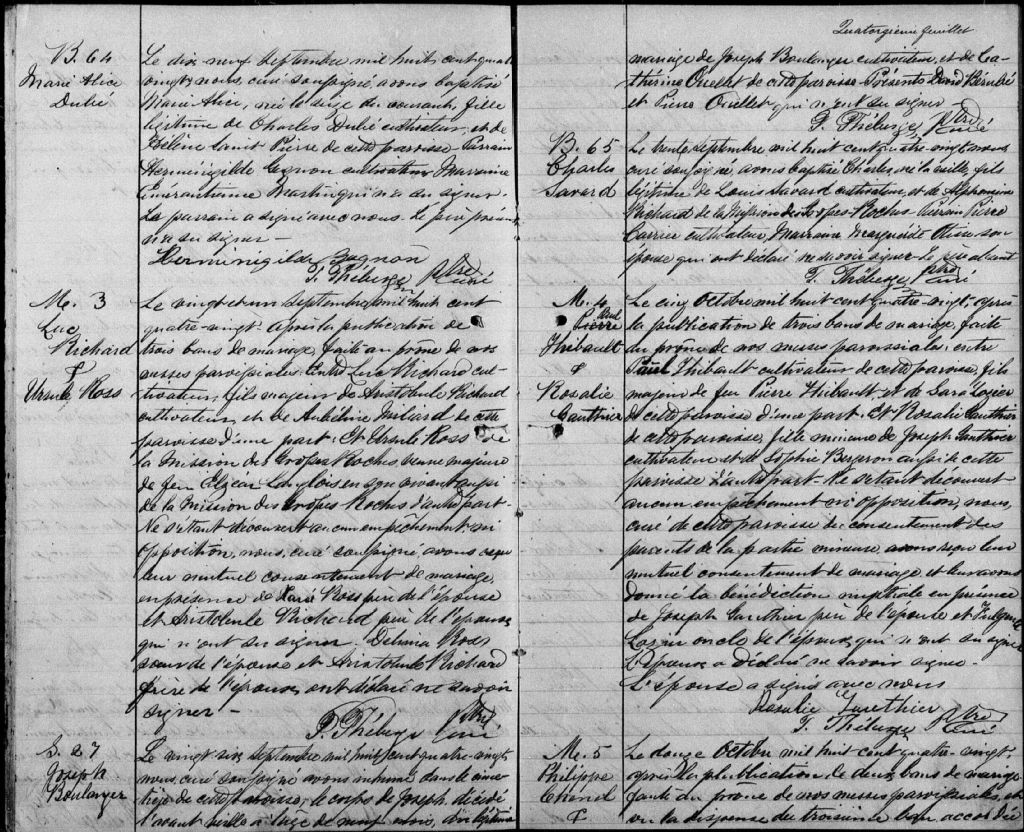 B. 64
Marie Alice
Dubé
Le dix neuf Septembre mil huit cent quatre
vingt, nous, curé soussigné, avons baptisé
Marie Alice, née le seize du courant, fille
légitime de Charles Dubé cultivateur, et de
Hélène Saint Pierre de cette paroisse. Parrain
Herménégilde Gagnon cultivateur, Marraine
Martin qui n'a su signer.
Le parrain a signé avec nous. Le père présent
n'a su signer —
Herménigilde Gagnon
P. Théberge Ptre Curé
M. 3
Luc
Richard
&
Ursule Ross
Le vingt et un Septembre mil huit cent
quatre-vingt, après la publication de
trois bans de mariage, faite au prône de nos
messes paroissiales, entre Luc Richard cul-
tivateur, fils majeur de Aristobule Richard
cultivateur, et de de cette
paroisse d'une part. Et Ursule Ross de
la Mission des Grosses Roches veuve majeure
de feu Elzéar Langlois en son vivant aussi
de la Mission des Grosses Roches d'autre part.
Ne s'étant découvert aucun empêchement ni
opposition, nous, curé soussigné avons reçu
leur mutuel consentement de mariage
en présence de Ross père de l'épouse
et Aristobule Richard père de l'époux,
qui n'ont su signer. Delima Ross
sœur de l'épouse et Aristobule Richard
frère de l'époux, ont déclaré ne savoir
signer —
P. Théberge Ptre Curé
S. 27
Joseph
Boulanger
Le vingt six Septembre mil huit cent quatre-vingt,
nous, curé soussigné avons inhumé dans le cime-
tière de cette paroisse, le corps de Joseph décédé
l'avant veille à l'age de neuf mois, du légitime
Quatorzième feuillet
mariage de Joseph Boulanger cultivateur, et de Ca-
thérine Ouellet de cette paroisse. Présents David Bérubé
et Pierre Ouellet qui n'ont su signer
P. Théberge Ptre Curé
B. 65
Charles
Savard
Le trente Septembre mil huit cent quatre-vingt, nous
curé soussigné, avons baptisé Charles, né la veille, fils
légitime de Louis Savard cultivateur, et de Alphonsine
Richard de la Mission des Grosses-Roches. Parrain Pierre
Carrier cultivateur, Marraine Marguerite son
épouse qui ont déclaré ne savoir signer. Le père absent
P. Théberge Ptre Curé
M. 4
Paul
Pierre
Thibault
&
Rosalie
Gauthier
Le cinq Octobre mil huit cent quatre-vingt, après
la publication de trois bans de mariage, faite
au prône de nos messes paroissiales, entre
Paul Thibault cultivateur de cette paroisse, fils
majeur de feu Pierre Thibault et de Sara Lozier
de cette paroisse d'une part. Et Rosalie Gauthier
de cette paroisse, fille mineure de Joseph Gauthier
cultivateur et de Sophie Bergeron aussi de cette
paroisse d'autre part. Ne s'étant découvert
aucun empêchement ni opposition, nous,
curé de cette paroisse du consentement des
parents de la partie mineure, avons reçu leur
mutuel consentement de mariage, et leur avons
donné la bénédiction nuptiale en présence
de Joseph Gauthier père de l'épouse et Fulgence
Lozier oncle de l'époux, qui n'ont su signer
L'époux a déclaré ne savoir signer.
L'épouse a signé avec nous
Rosalie Gauthier
P. Théberge Ptre Curé
M. 5
Philippe
&
Le douze Octobre mil huit cent quatre-vingt,
après la publication de deux bans de mariage
faite au prone de nos messes paroissiales, et
vu la dispense du troisième ban accordée